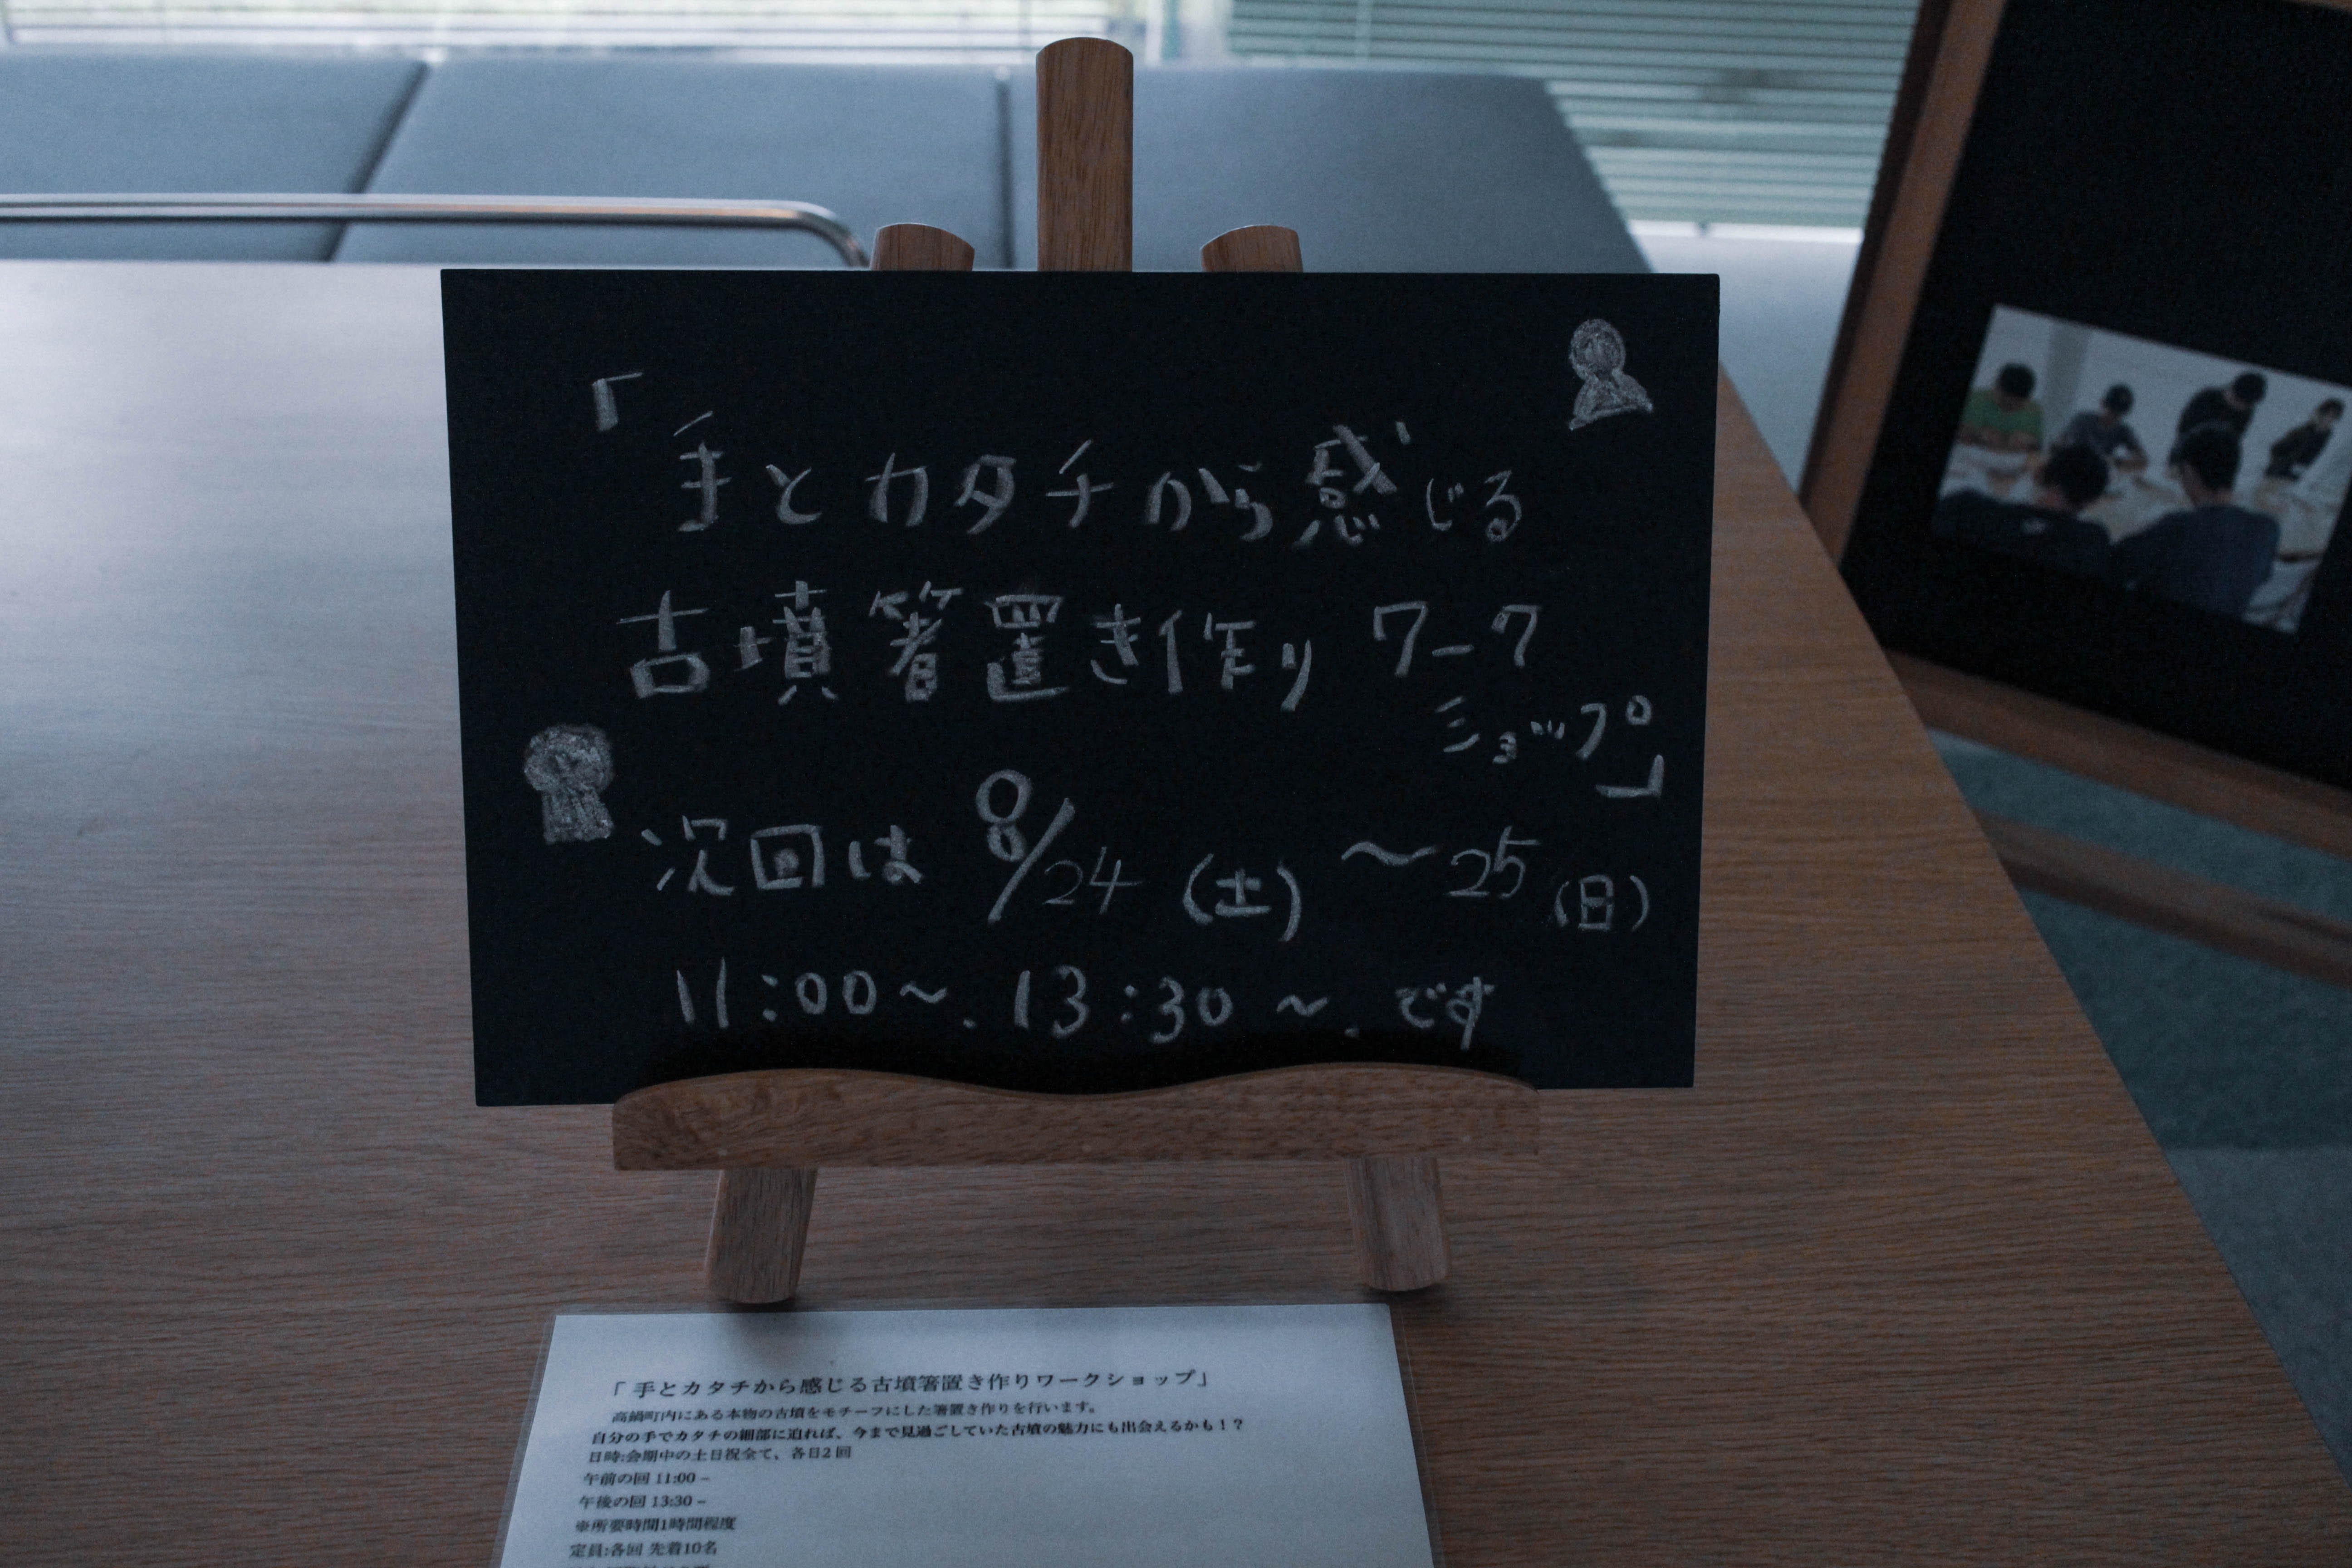 「手とカタチから感じる
古墳箸置き作りワーク
ショップ」
次回は 8/24(土)～25(日)
11:00～. 13:30～. です
「手とカタチから感じる古墳箸置き作りワークショップ」
高鍋町内にある本物の古墳をモチーフにした箸置き作りを行います。
自分の手でカタチの細部に迫れば、今まで見過ごしていた古墳の魅力にも出会えるかも！？
日時:会期中の土日祝全て、各日2回
午前の回 11:00 –
午後の回 13:30 –
※所要時間1時間程度
定員:各回 先着10名